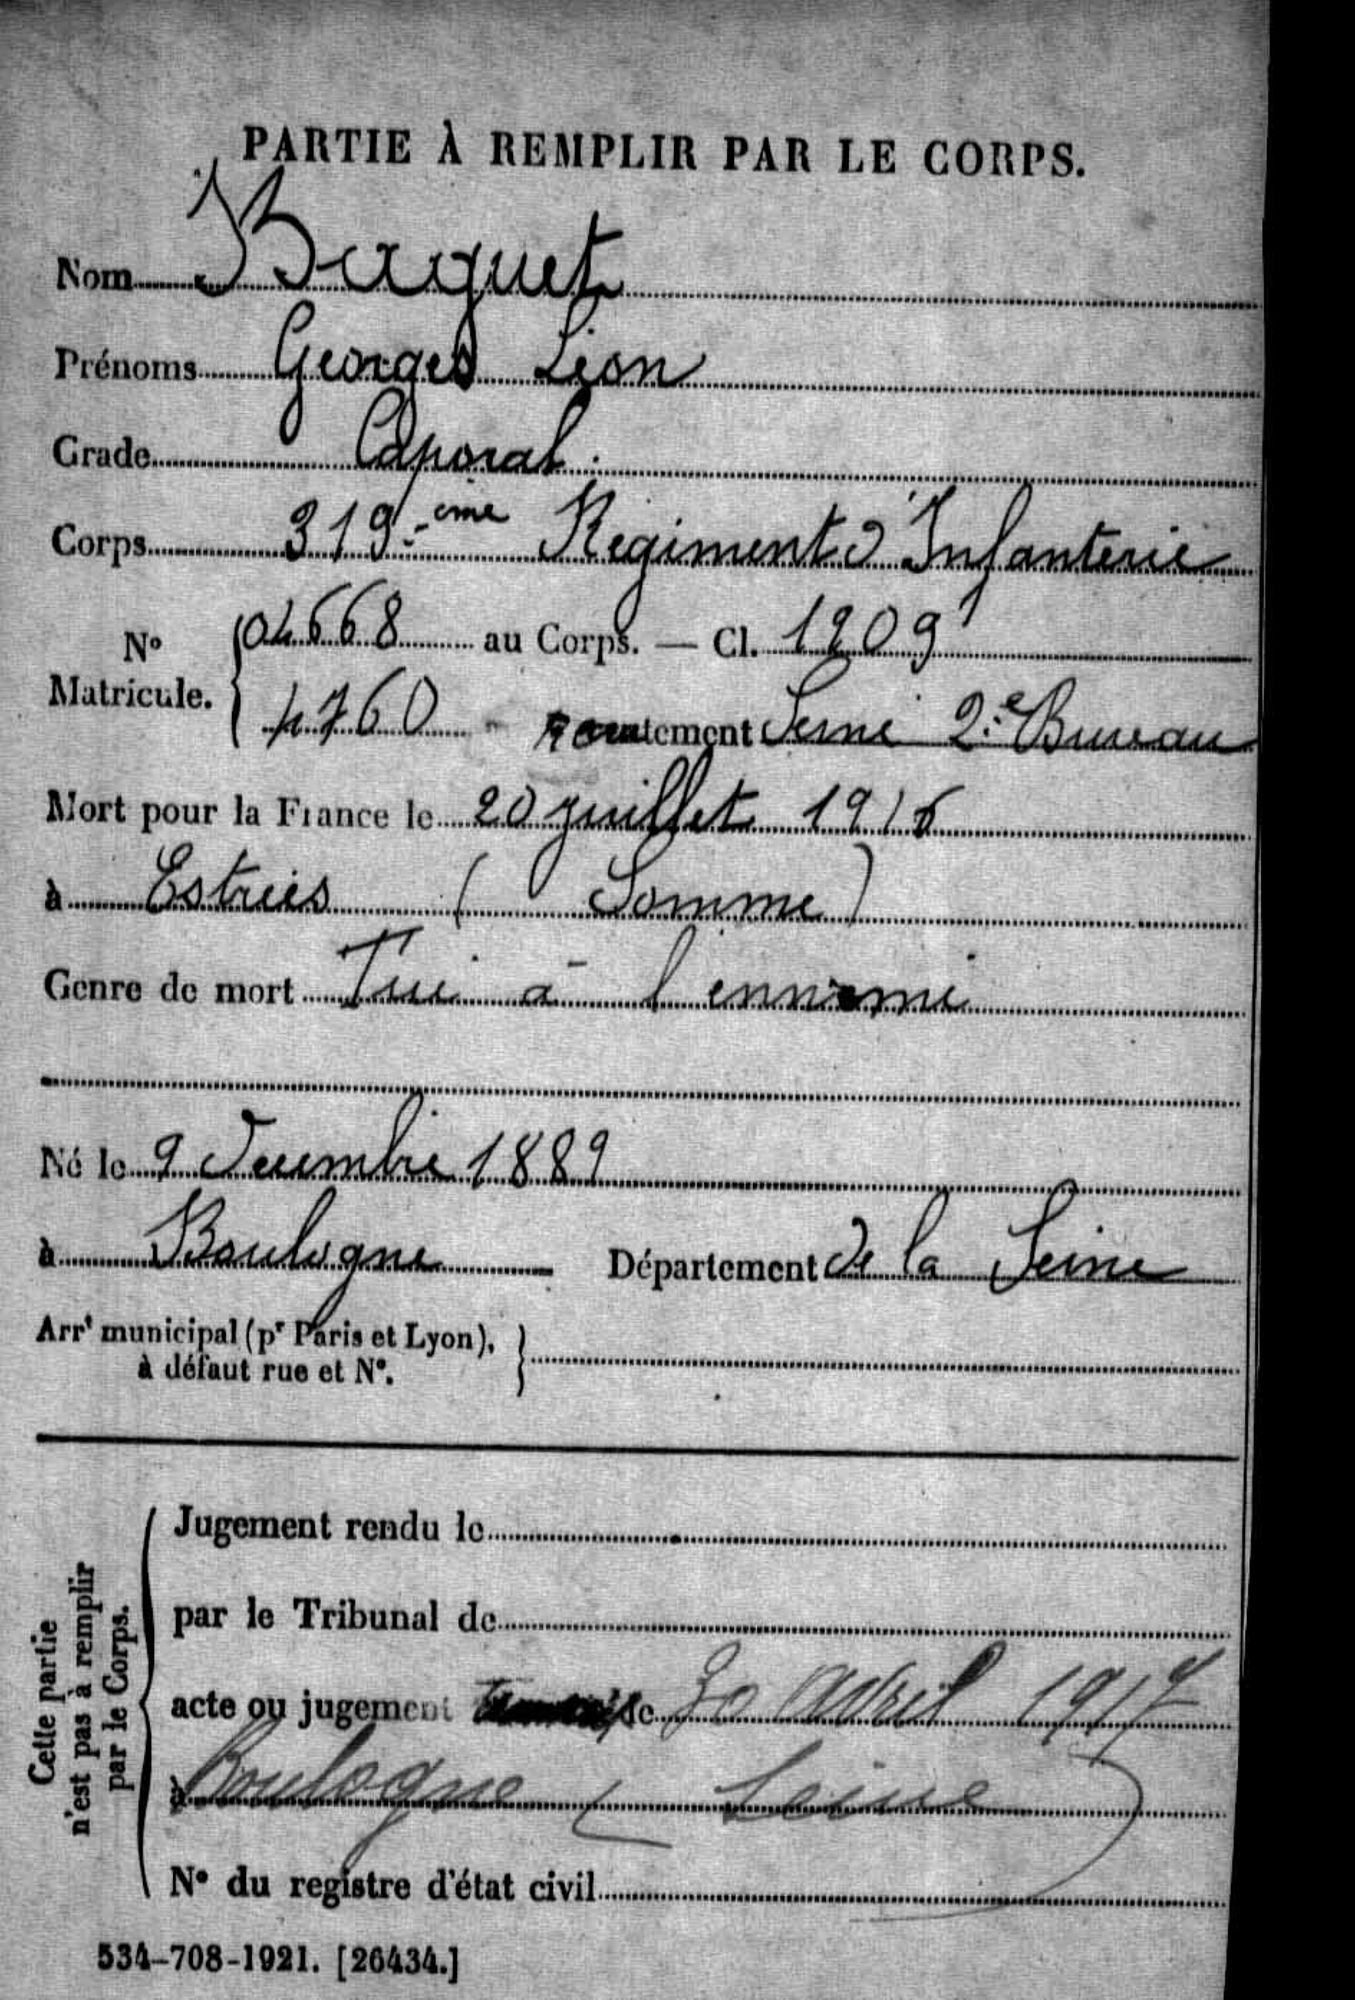 PARTIE À REMPLIR PAR LE CORPS.
Nom Baquet
Prénoms Georges Léon
Grade Caporal.
Corps 319.ème Régiment d'Infanterie
No Matricule. { 04668 au Corps. — Cl. 1909
4760 Recrutement Seine 2.e Bureau
Mort pour la France le 20 juillet 1916
à Estrées (Somme)
Genre de mort Tué à l'ennemi
Né le 9 Décembre 1889
à Boulogne Département de la Seine
Arrt municipal (pr Paris et Lyon), }
à défaut rue et No.
Cette partie n'est pas à remplir par le Corps.
Jugement rendu le
par le Tribunal de
acte ou jugement le 30 avril 1917
à Boulogne (Seine)
No du registre d'état civil
534-708-1921. [26434.]